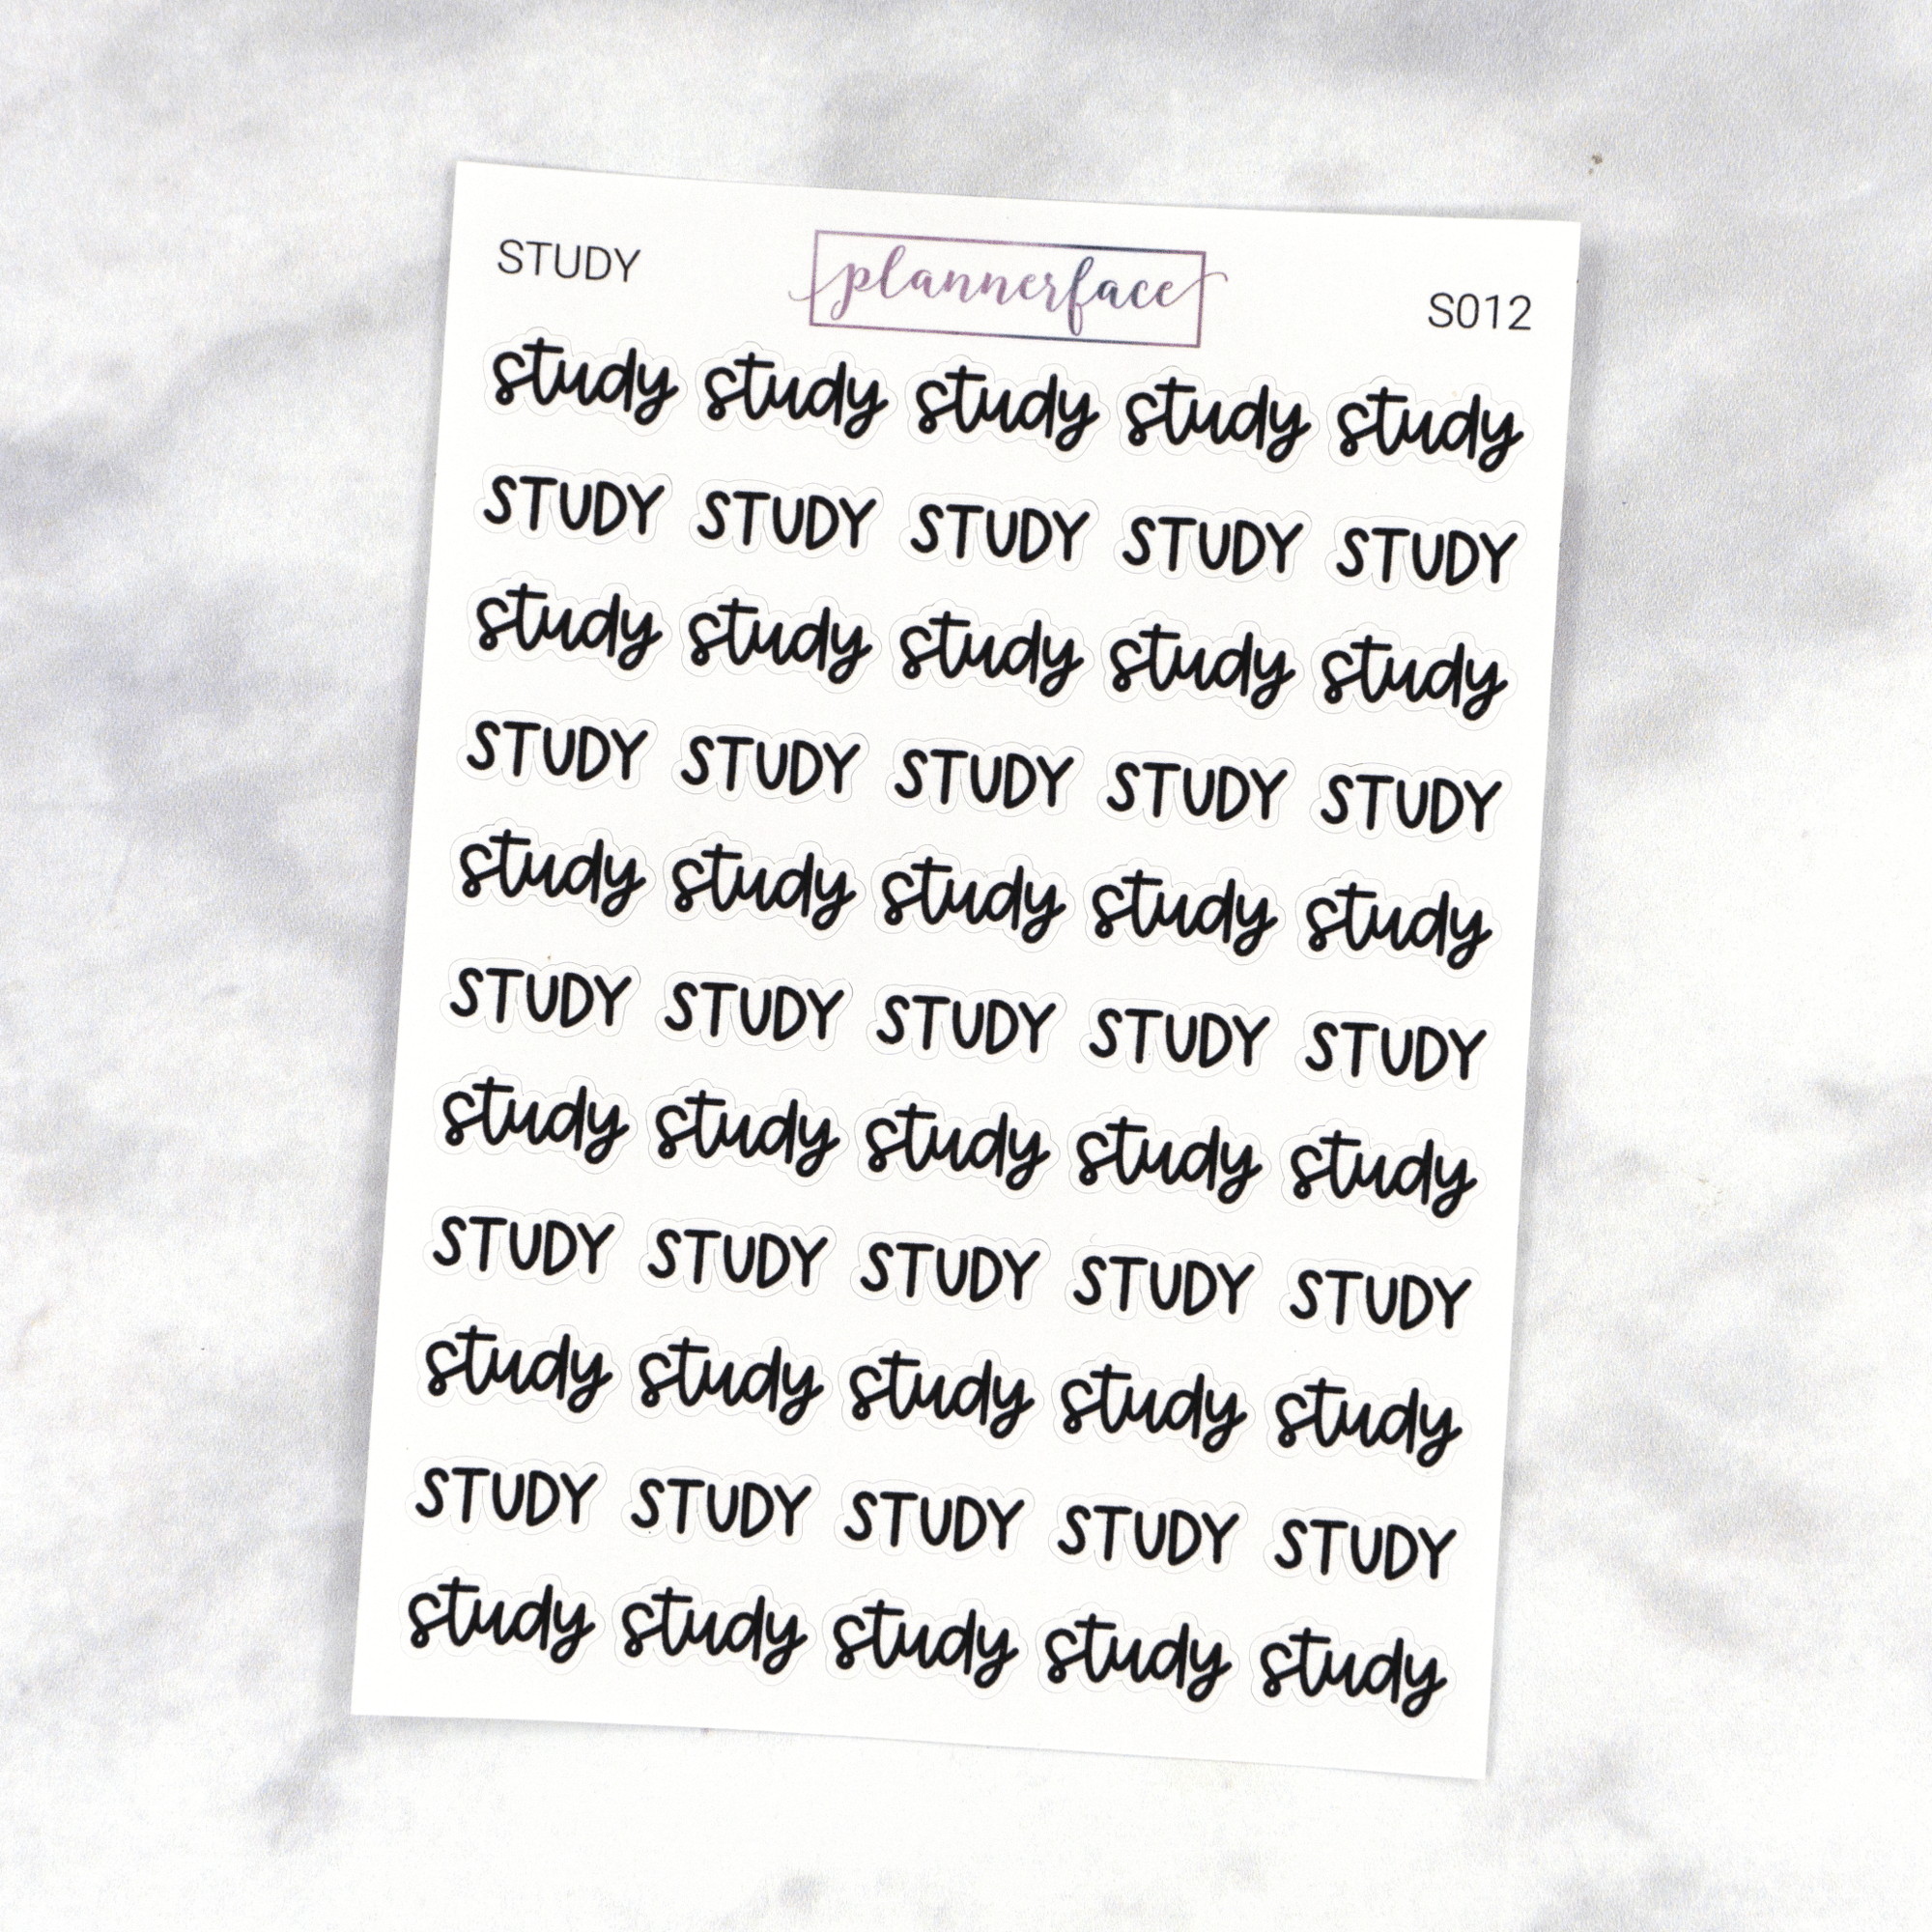 STUDY plannerface S012
study study study study study
STUDY STUDY STUDY STUDY STUDY
study study study study study
STUDY STUDY STUDY STUDY STUDY
study study study study study
STUDY STUDY STUDY STUDY STUDY
study study study study study
STUDY STUDY STUDY STUDY STUDY
study study study study study
STUDY STUDY STUDY STUDY STUDY
study study study study study